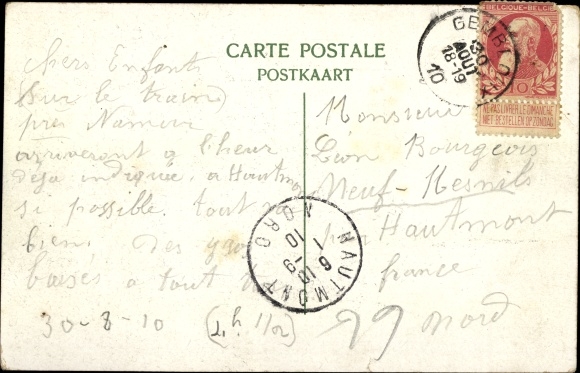 CARTE POSTALE
POSTKAART
BELGIQUE-BELGIË
10
NE PAS LIVRER LE DIMANCHE
NIET BESTELLEN OP ZONDAG
GEMBLOUX
30
AOUT
18-19
10
Chers Enfants
Sur le train
près Namur
arriveront a l'heur
deja indiquée, a Hautmon
si possible. tout va
bien. Des gros
baisés a tout
30-8-10 (4h 1/2)
Monsieur
Léon Bourgeois
Neuf-Mesnils
Hautmont
france
Nord
HAUTMONT
NORD